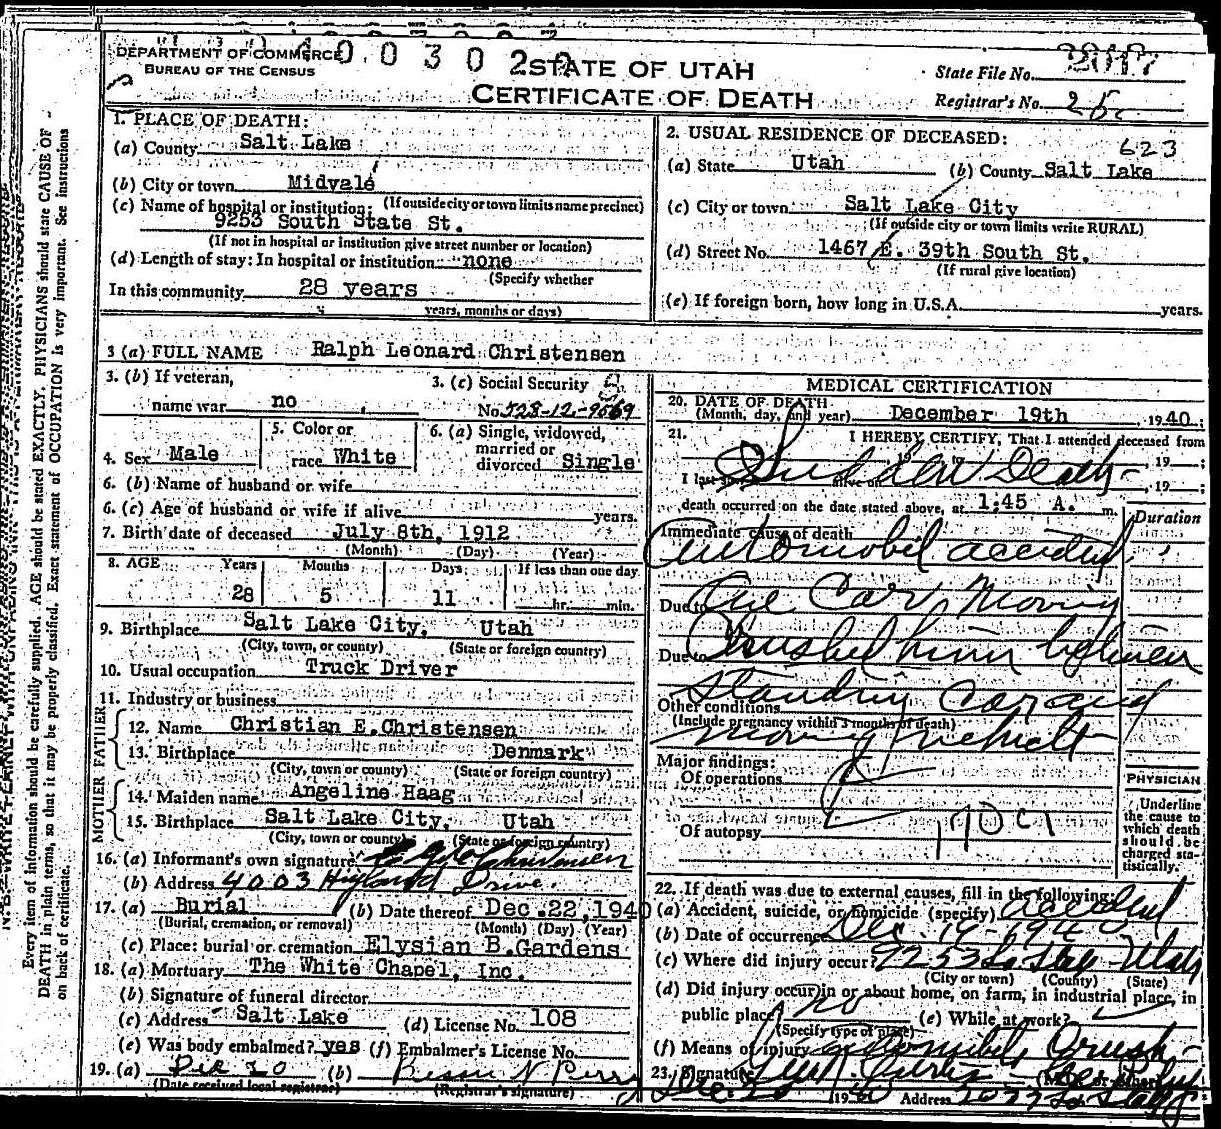 DEPARTMENT OF COMMERCE
BUREAU OF THE CENSUS
STATE OF UTAH
CERTIFICATE OF DEATH
State File No.
Registrar's No. 25
1. PLACE OF DEATH:
(a) County Salt Lake
(b) City or town Midvale
(If outside city or town limits name precinct)
(c) Name of hospital or institution:
9253 South State St.
(If not in hospital or institution give street number or location)
(d) Length of stay: In hospital or institution none
(Specify whether
In this community 28 years
years, months or days)
2. USUAL RESIDENCE OF DECEASED:
623
(a) State Utah (b) County Salt Lake
(c) City or town Salt Lake City
(If outside city or town limits write RURAL)
(d) Street No. 1467 E. 39th South St.
(If rural give location)
(e) If foreign born, how long in U.S.A. years.
3 (a) FULL NAME Ralph Leonard Christensen
3. (b) If veteran,
name war no
3. (c) Social Security
No.
4. Sex Male
5. Color or
race White
6. (a) Single, widowed,
married or
divorced Single
6. (b) Name of husband or wife
6. (c) Age of husband or wife if alive years.
7. Birth date of deceased July 8th, 1912
(Month) (Day) (Year)
8. AGE Years Months Days If less than one day
28 5 11 hr. min.
9. Birthplace Salt Lake City, Utah
(City, town, or county) (State or foreign country)
10. Usual occupation Truck Driver
11. Industry or business
FATHER
12. Name Christian E. Christensen
13. Birthplace Denmark
(City, town or county) (State or foreign country)
MOTHER
14. Maiden name Angeline Haag
15. Birthplace Salt Lake City, Utah
(City, town or county) (State or foreign country)
16. (a) Informant's own signature Christensen
(b) Address 4003 Highland Drive.
17. (a) Burial (b) Date thereof Dec. 22, 1940
(Burial, cremation, or removal) (Month) (Day) (Year)
(c) Place: burial or cremation Elysian B. Gardens
18. (a) Mortuary The White Chapel, Inc.
(b) Signature of funeral director
(c) Address Salt Lake (d) License No. 108
(e) Was body embalmed? yes (f) Embalmer's License No.
19. (a) Dec 20 (b)
(Date received local registrar) (Registrar's signature)
MEDICAL CERTIFICATION
20. DATE OF DEATH
(Month, day, and year) December 19th 1940;
21. I HEREBY CERTIFY, That I attended deceased from
Sudden Death
death occurred on the date stated above, at 1:45 A. m.
Duration
Immediate cause of death
Automobil accident
Due to One Car Moving
Due to Crushed him between
Standing Car and
Other conditions
(Include pregnancy within 3 months of death)
Moving
Major findings:
Of operations
Of autopsy
PHYSICIAN
Underline
the cause to
which death
should be
charged sta-
tistically.
22. If death was due to external causes, fill in the following:
(a) Accident, suicide, or homicide (specify) accident
(b) Date of occurrence Dec. 19-1940
(c) Where did injury occur? 9253 So State Utah
(City or town) (County) (State)
(d) Did injury occur in or about home, on farm, in industrial place, in
public place? no (e) While at work?
(Specify type of place)
(f) Means of injury Automobile Crush
23. Signature
Dec. 20 1940 Address
Every item of information should be carefully supplied. AGE should be stated EXACTLY. PHYSICIANS should state CAUSE OF
DEATH in plain terms, so that it may be properly classified. Exact statement of OCCUPATION is very important. See instructions
on back of certificate.